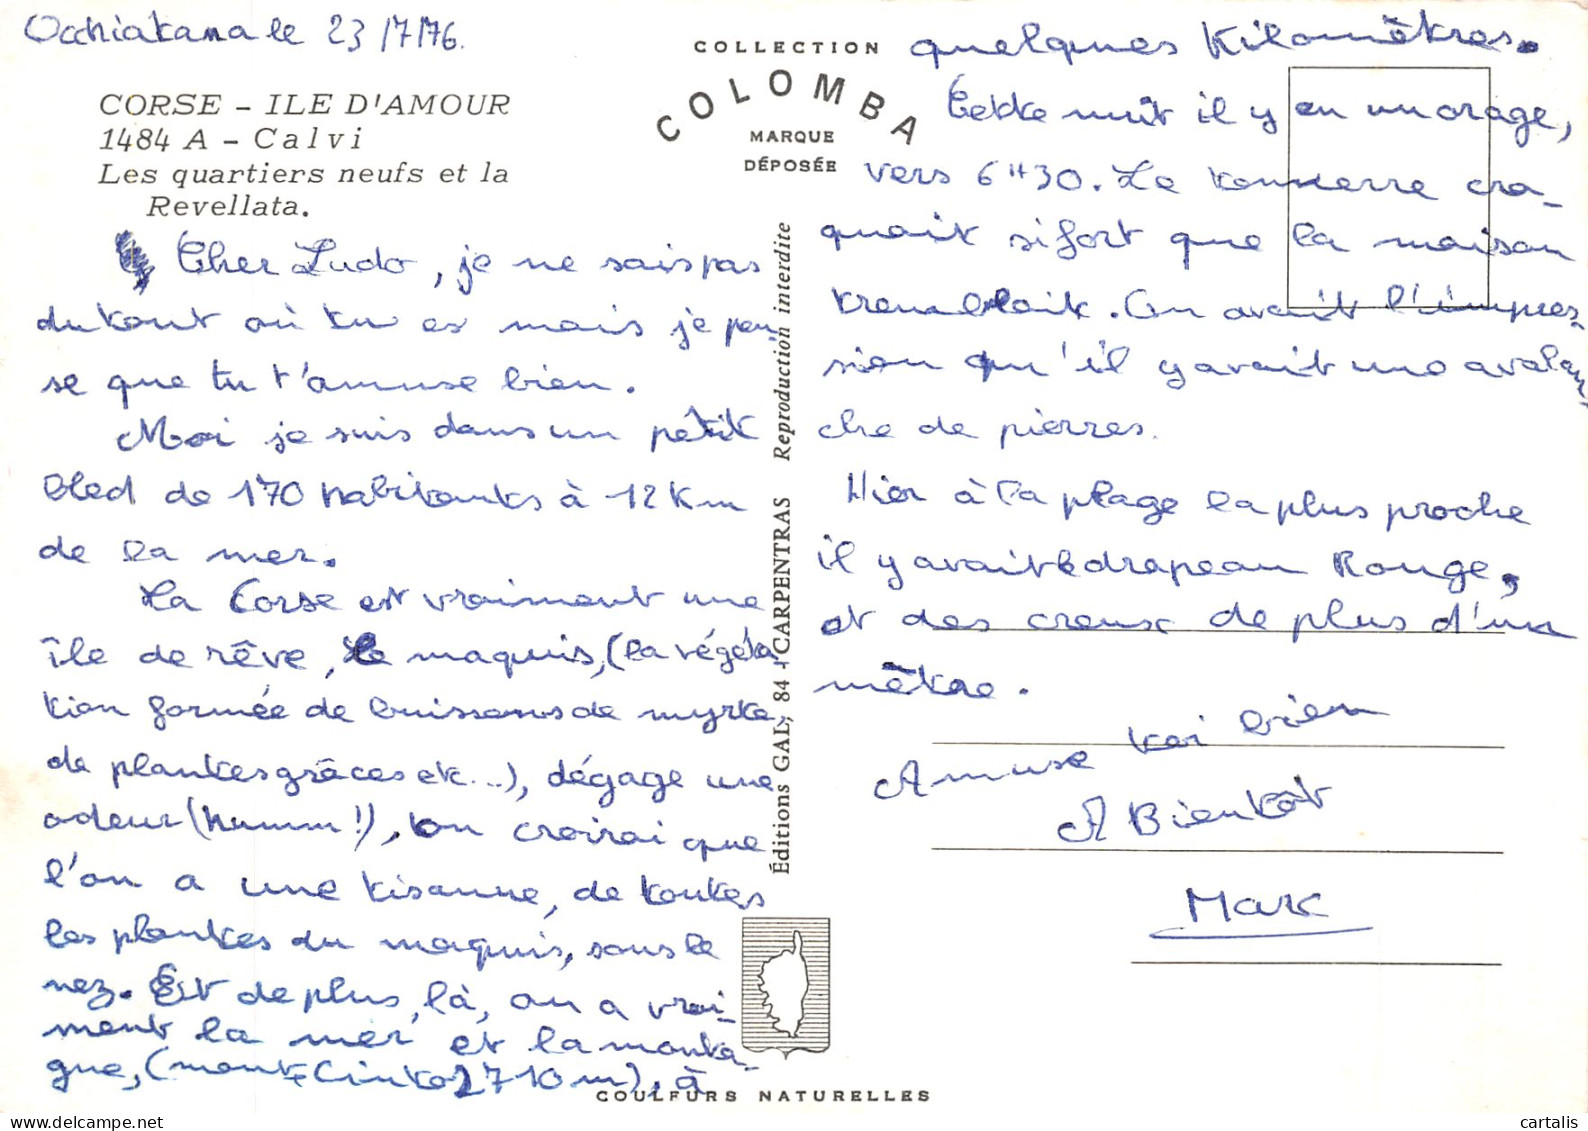 Occhiatana le 23/7/76.
CORSE - ILE D'AMOUR
1484 A - Calvi
Les quartiers neufs et la
Revellata.
COLLECTION
COLOMBA
MARQUE
DÉPOSÉE
Cher Ludo, je ne sais pas
du tout où tu es mais je pen-
se que tu t'amuse bien.
Moi je suis dans un petit
bled de 170 habitants à 12 Km
de la mer.
La Corse est vraiment une
île de rêve, le maquis, (la végéta
tion formée de buissons de myrte,
de plantes grâces etc...), dégage une
odeur (hummm!), on croirai que
l'on a une tisanne, de toutes
les plantes du maquis, sous le
nez. Et de plus, là, on a vrai-
ment la mer et la monta-
gne, (mont Cinto 2710 m), à
Éditions GAL, 84 - CARPENTRAS Reproduction interdite
COULEURS NATURELLES
quelques Kilomètres.
Cette nuit il y eu un orage,
vers 6H30. Le tonnerre cra-
quait si fort que la maison
tremblait. On avait l'impres-
sion qu'il y avait une avalan-
che de pierres.
Hier à la plage la plus proche
il y avait le drapeau Rouge,
et des creux de plus d'un
mètre.
Amuse toi bien
A Bientôt
Marc
cartalis